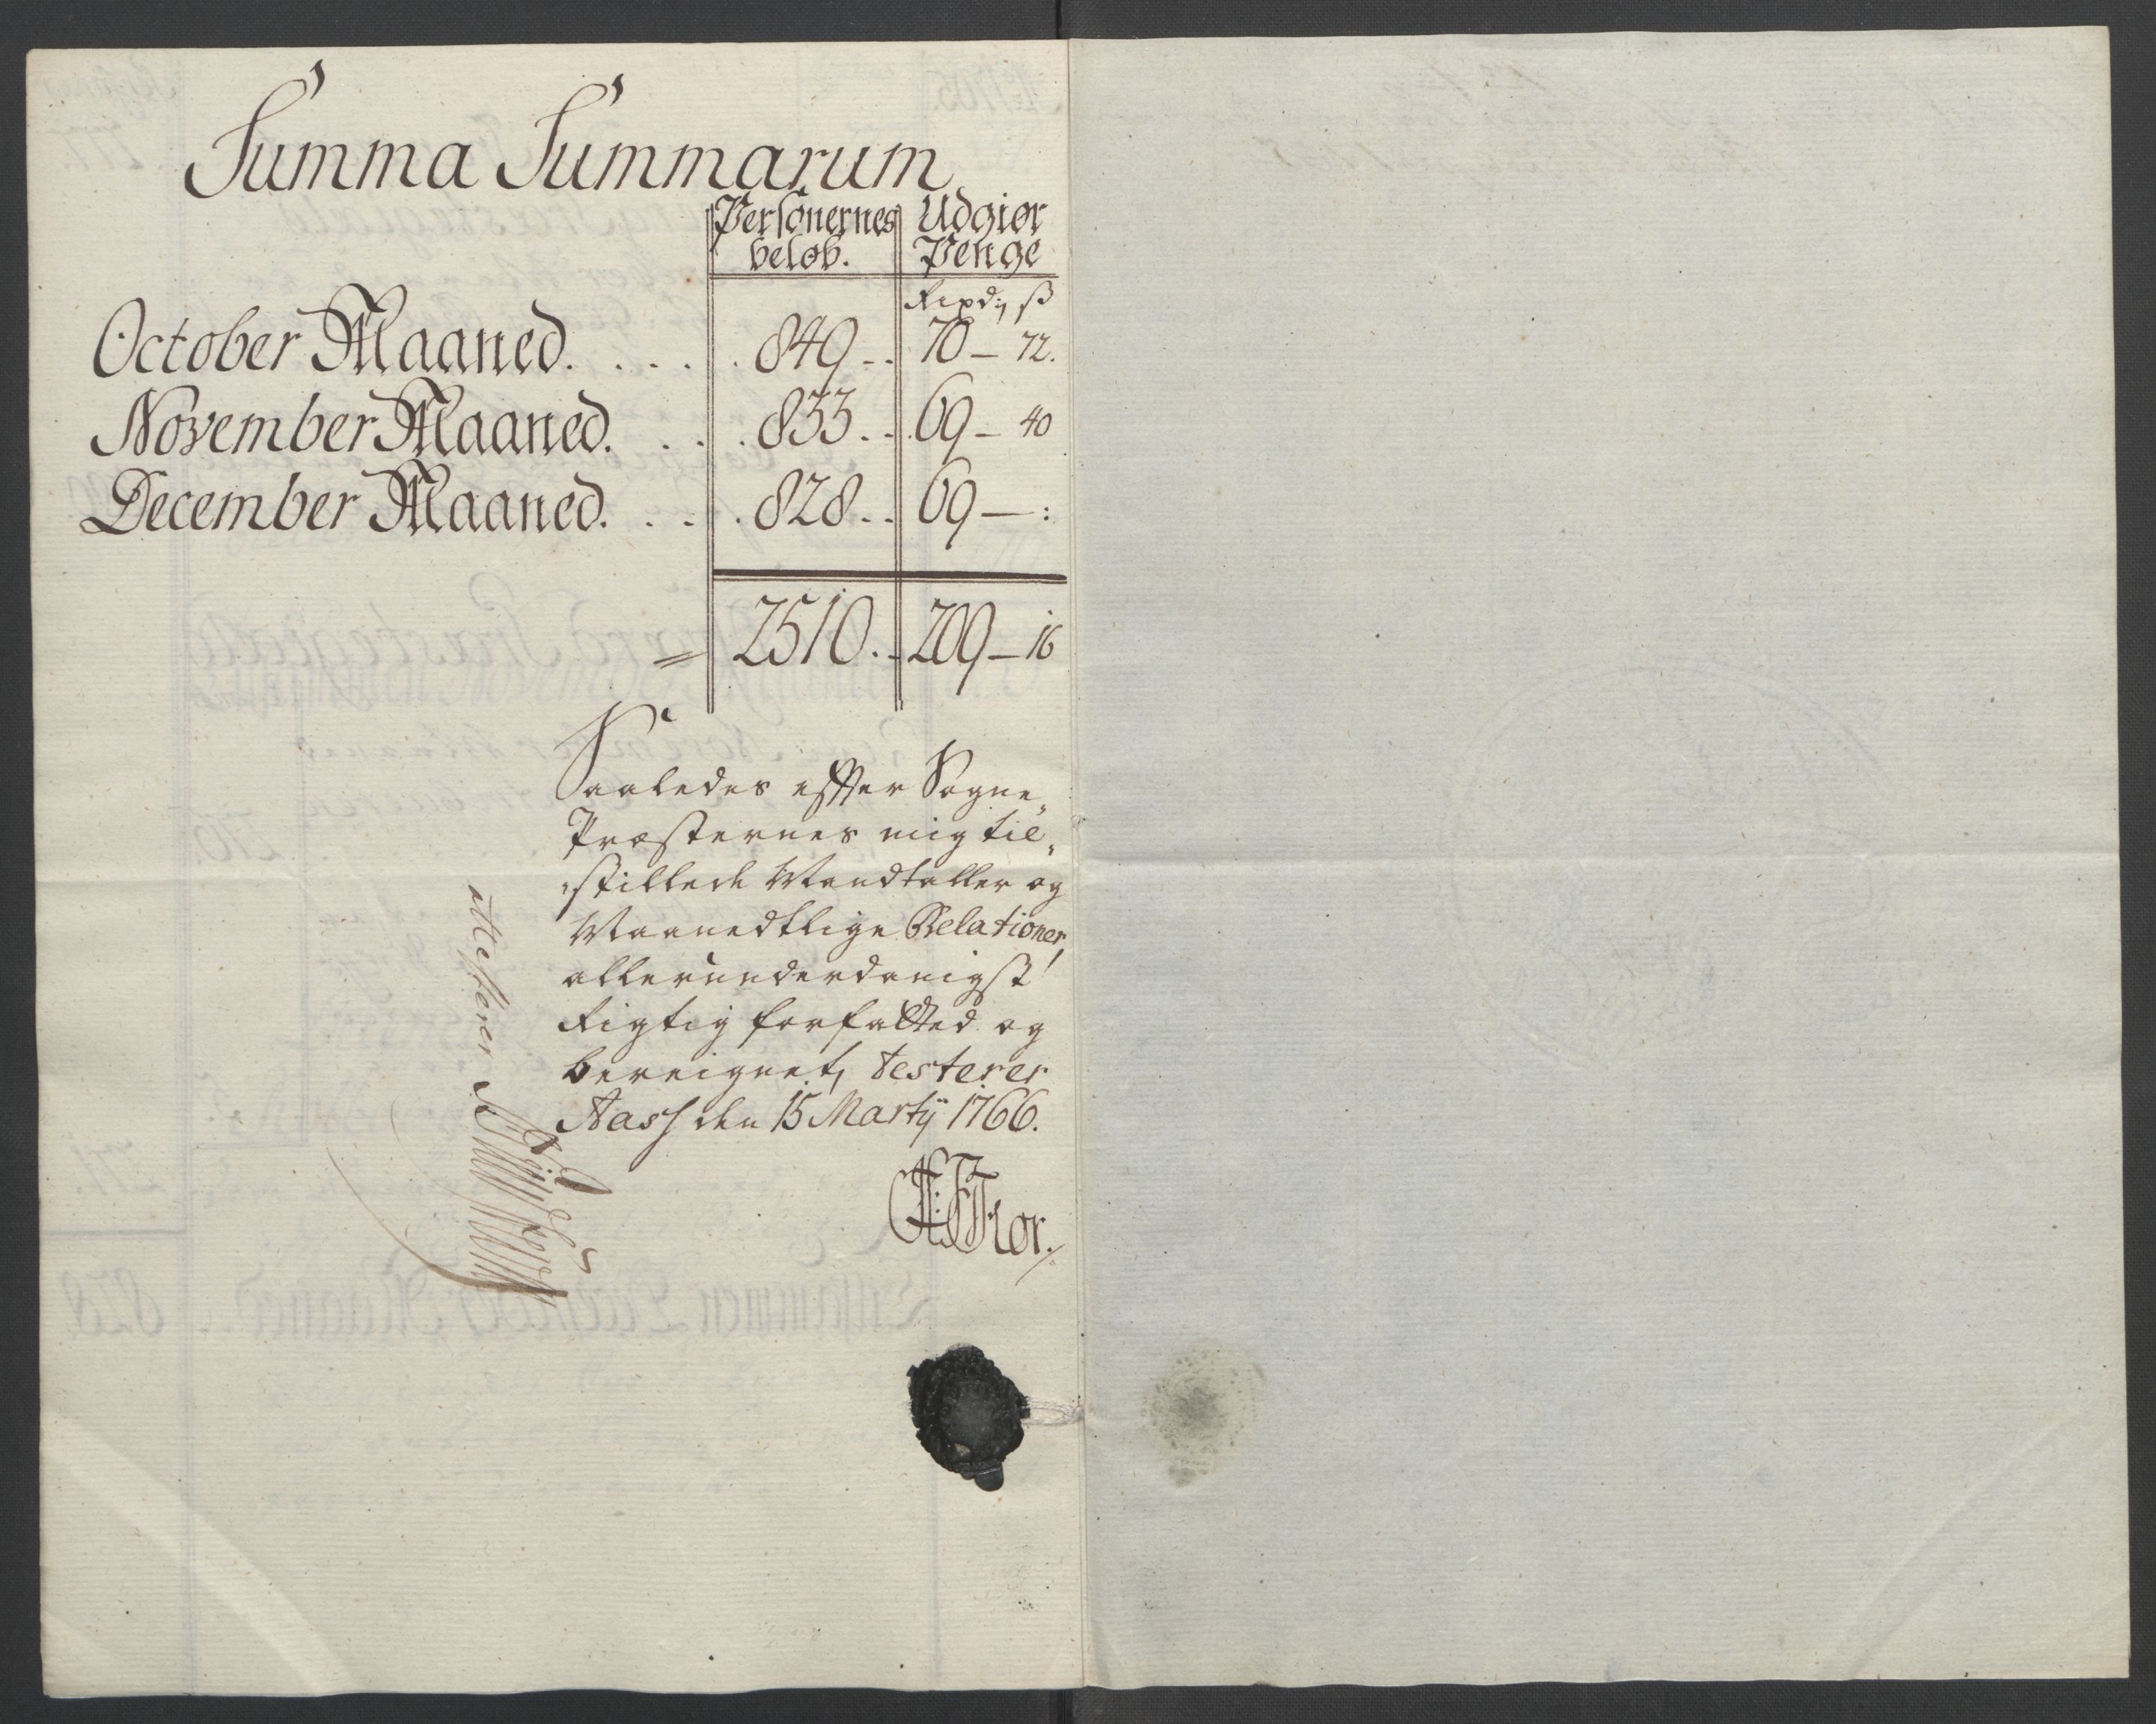 Summa Summarum
Personernes Udgiør
beløb. Penge
Rixdr, ß
October Maaned. . . . . . 849 - . 70 - 72.
November Maaned. . . . . 833 . - . 69 - 40
December Maaned. . . . . 828 . . 69 - :
= 2510 . - 209 - 16
Saaledes effter Sogne,
Præsternes mig til,
stillede Mandtaller og
Maanedtlige Relationer,
allerunderdanigst
Rigtig forfatted og
bereignet, testerer
Aass den 15 Martij 1766.
Fiør.
attesterer